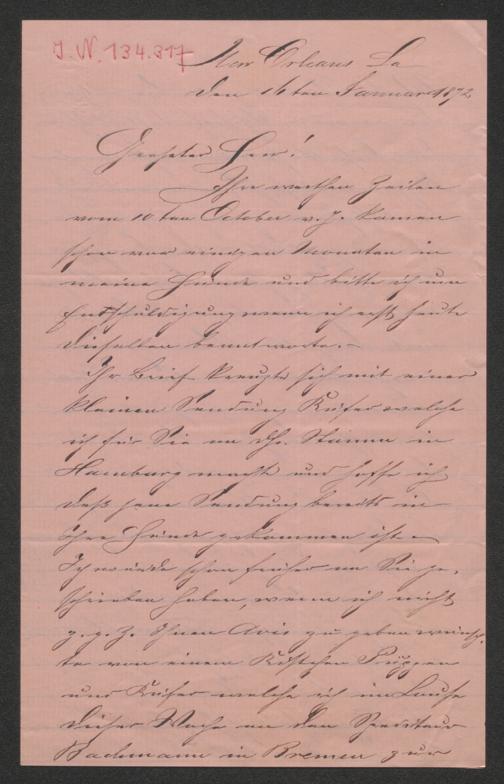 J. N. 134.317
New Orleans La
den 16ten Januar 1872
Geehrter Herr!
Ihre werthen Zeilen
vom 10ten October v. J. kamen
schon vor einigen Monaten in
meine Hände und bitte ich um
Entschuldigung wenn ich erst heute
dieselben beantworte. –
Ihr Brief kreuzte sich mit einer
kleinen Sendung Käfer welche
ich für Sie an Dr. in
Hamburg machte und hoffe ich
daß jene Sendung bereits in
Ihre Hände gekommen ist. –
Ich würde schon früher an Sie ge-
schrieben haben, wenn ich nicht
z. Z. Ihnen Avis zu geben wünsch-
te von einem Kistchen Puppen
und Käfer welche ich im Laufe
dieser Woche an den Spediteur
Bachmann in Bremen zur